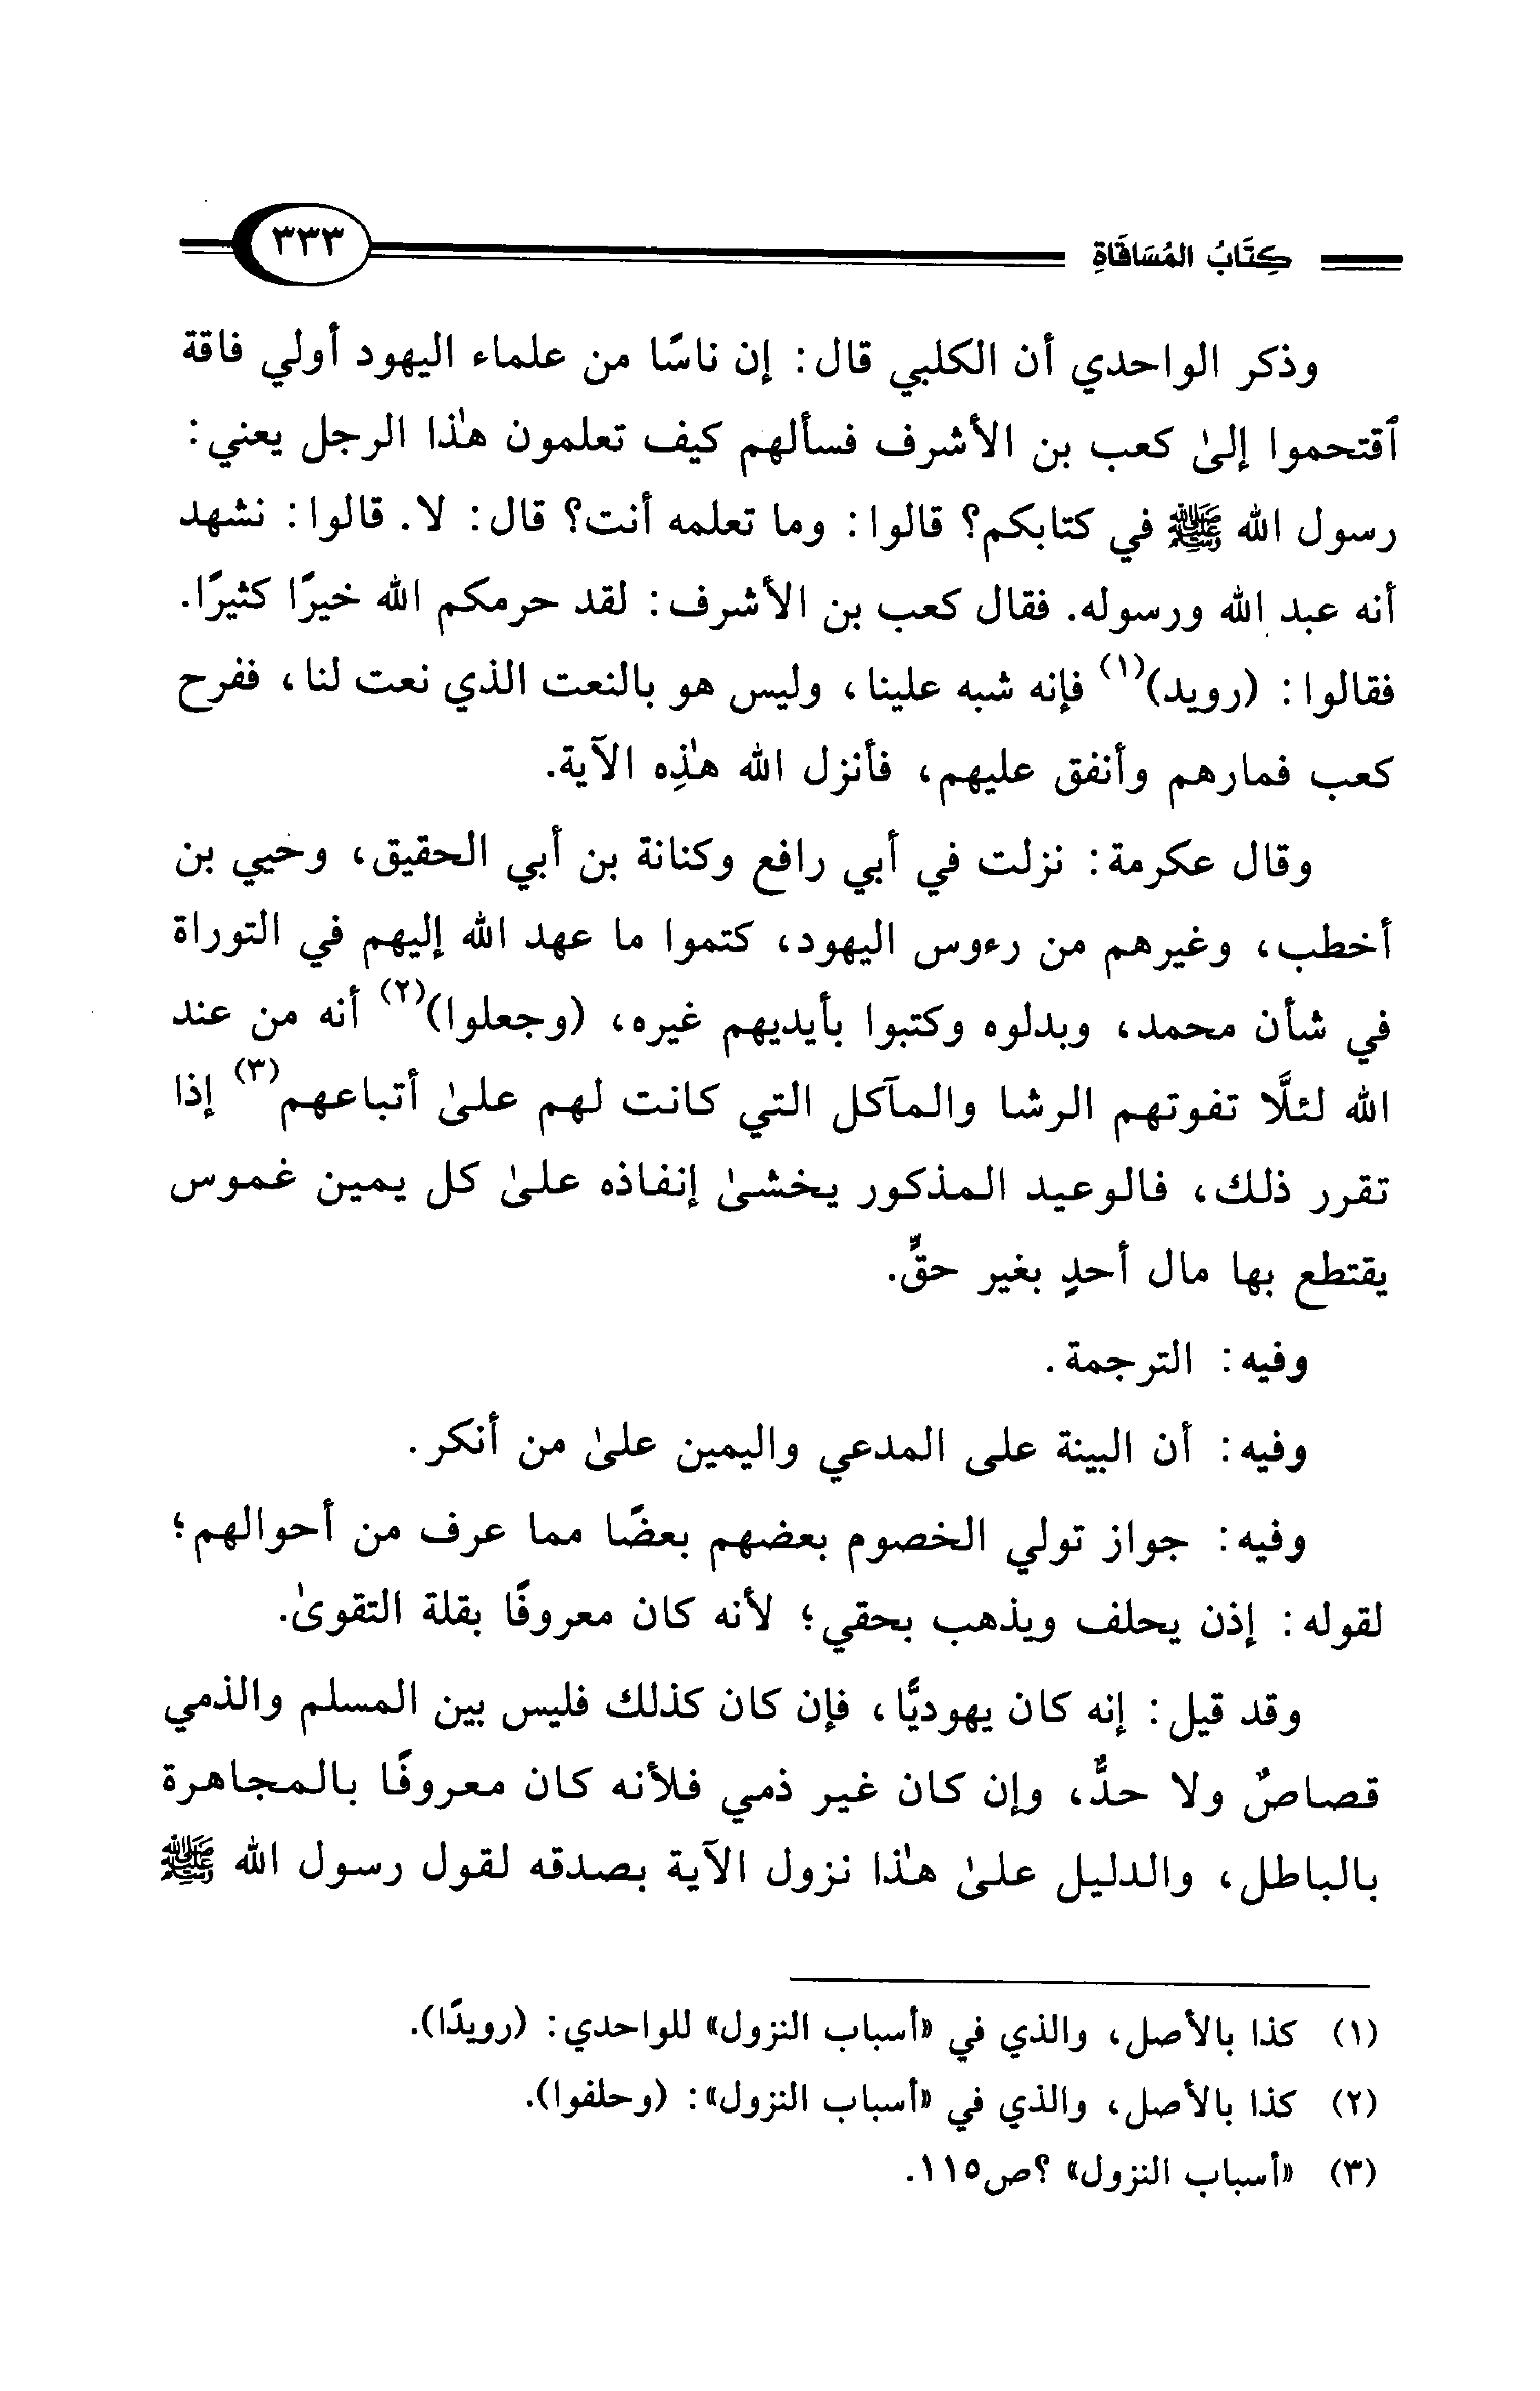 كِتَابُ المُسَاقَاةِ ٣٣٣
وذكر الواحدي أن الكلبي قال: إن ناسًا من علماء اليهود أولي فاقة
ٱقتحموا إلىٰ كعب بن الأشرف فسألهم كيف تعلمون هذا الرجل يعني:
رسول الله ﷺ في كتابكم؟ قالوا: وما تعلمه أنت؟ قال: لا. قالوا: نشهد
أنه عبد الله ورسوله. فقال كعب بن الأشرف: لقد حرمكم الله خيرًا كثيرًا.
فقالوا: (رويد)(١) فإنه شبه علينا، وليس هو بالنعت الذي نعت لنا، ففرح
كعب فمارهم وأنفق عليهم، فأنزل الله هٰذِه الآية.
وقال عكرمة: نزلت في أبي رافع وكنانة بن أبي الحقيق، وحيي بن
أخطب، وغيرهم من رءوس اليهود، كتموا ما عهد الله إليهم في التوراة
في شأن محمد، وبدلوه وكتبوا بأيديهم غيره، (وجعلوا)(٢) أنه من عند
الله لئلَّا تفوتهم الرشا والمآكل التي كانت لهم علىٰ أتباعهم(٣) إذا
تقرر ذلك، فالوعيد المذكور يخشىٰ إنفاذه علىٰ كل يمين غموس
يقتطع بها مال أحدٍ بغير حقٍّ.
وفيه: الترجمة.
وفيه: أن البينة على المدعي واليمين علىٰ من أنكر.
وفيه: جواز تولي الخصوم بعضهم بعضًا مما عرف من أحوالهم؛
لقوله: إذن يحلف ويذهب بحقي؛ لأنه كان معروفًا بقلة التقوىٰ.
وقد قيل: إنه كان يهوديًّا، فإن كان كذلك فليس بين المسلم والذمي
قصاصٌ ولا حدٌّ، وإن كان غير ذمي فلأنه كان معروفًا بالمجاهرة
بالباطل، والدليل علىٰ هٰذا نزول الآية بصدقه لقول رسول الله ﷺ
(١) كذا بالأصل، والذي في «أسباب النزول» للواحدي: (رويدًا).
(٢) كذا بالأصل، والذي في «أسباب النزول»: (وحلفوا).
(٣) «أسباب النزول» ؟ص١١٥.